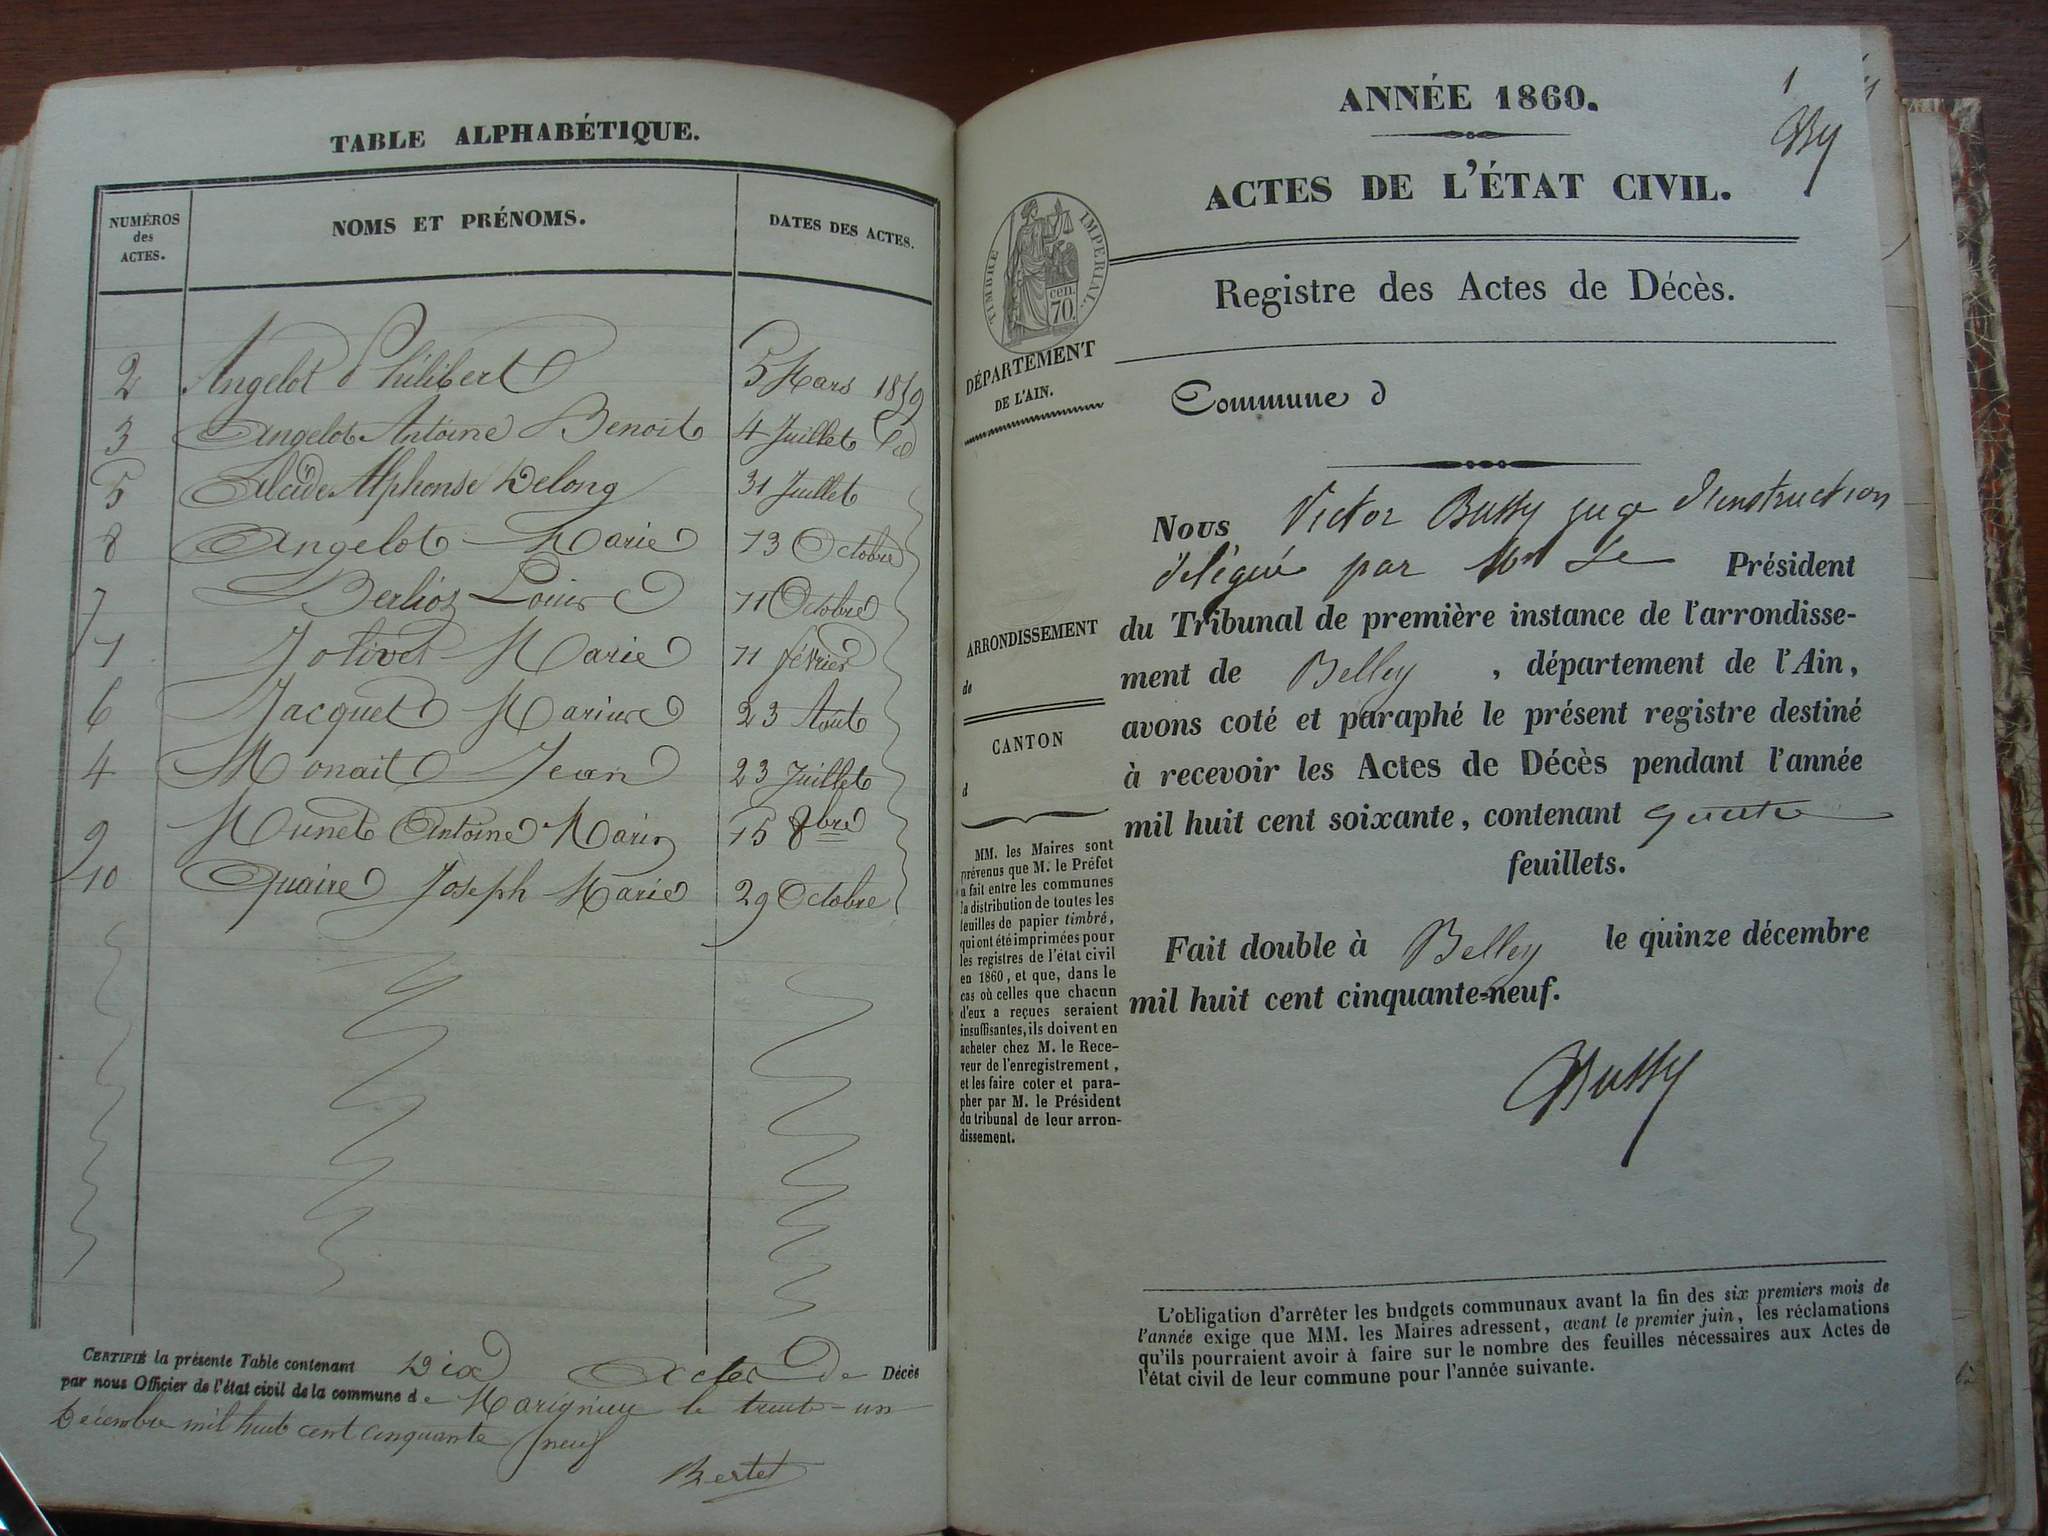 TABLE ALPHABÉTIQUE.
NUMÉROS des ACTES. NOMS ET PRÉNOMS. DATES DES ACTES.
2 Angelot Philibert 5 Mars 1859
3 Angelot Antoine Benoit 4 Juillet Id
5 Alcide Alphonse Delong 31 Juillet
8 Angelot Marie 13 Octobre
7 Berlioz Louis 11 Octobre
1 Jolivet Marie 11 février
6 Jacquet Marius 23 Aout
4 Monait Jean 23 Juillet
9 Munet Antoine Marin 15 8bre
10 Quaire Joseph Marie 29 Octobre
CERTIFIÉ la présente Table contenant Dix Actes de Décès
par nous Officier de l'état civil de la commune de Marignieu le trente-un
Décembre mil huit cent cinquante neuf
Bertet
1
By
ANNÉE 1860.
ACTES DE L'ÉTAT CIVIL.
TIMBRE IMPÉRIAL.
cen.
70.
Registre des Actes de Décès.
DÉPARTEMENT
DE L'AIN.
Commune d
ARRONDISSEMENT
de
CANTON
d
MM. les Maires sont
prévenus que M. le Préfet
a fait entre les communes
la distribution de toutes les
feuilles de papier timbré,
qui ont été imprimées pour
les registres de l'état civil
en 1860, et que, dans le
cas où celles que chacun
d'eux a reçues seraient
insuffisantes, ils doivent en
acheter chez M. le Rece-
veur de l'enregistrement,
et les faire coter et para-
pher par M. le Président
du tribunal de leur arron-
dissement.
Nous Victor Bussy juge d'instruction
délégué par Mr Le Président
du Tribunal de première instance de l'arrondisse-
ment de Belley, département de l'Ain,
avons coté et paraphé le présent registre destiné
à recevoir les Actes de Décès pendant l'année
mil huit cent soixante, contenant quatre
feuillets.
Fait double à Belley le quinze décembre
mil huit cent cinquante-neuf.
Bussy
L'obligation d'arrêter les budgets communaux avant la fin des six premiers mois de
l'année exige que MM. les Maires adressent, avant le premier juin, les réclamations
qu'ils pourraient avoir à faire sur le nombre des feuilles nécessaires aux Actes de
l'état civil de leur commune pour l'année suivante.